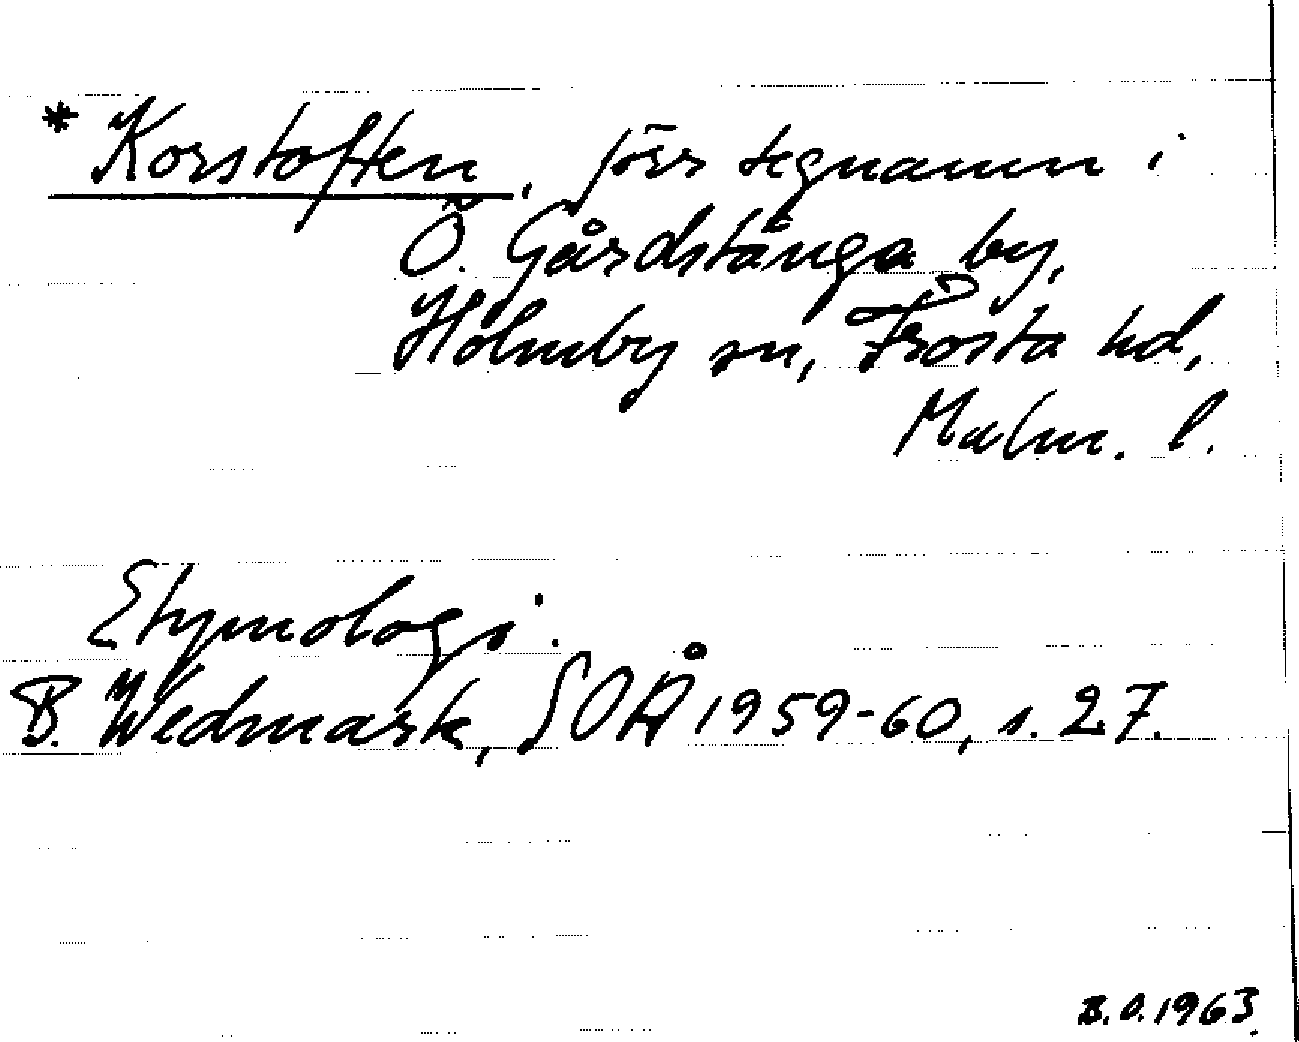 * Korstoften, förr tegnamn i
Ö. Gårdstånga by,
Holmby sn, Frosta hd,
Malm. l.
Etymologi.
B. Wedmark, SOÅ 1959-60, s. 27.
B.O. 1963.